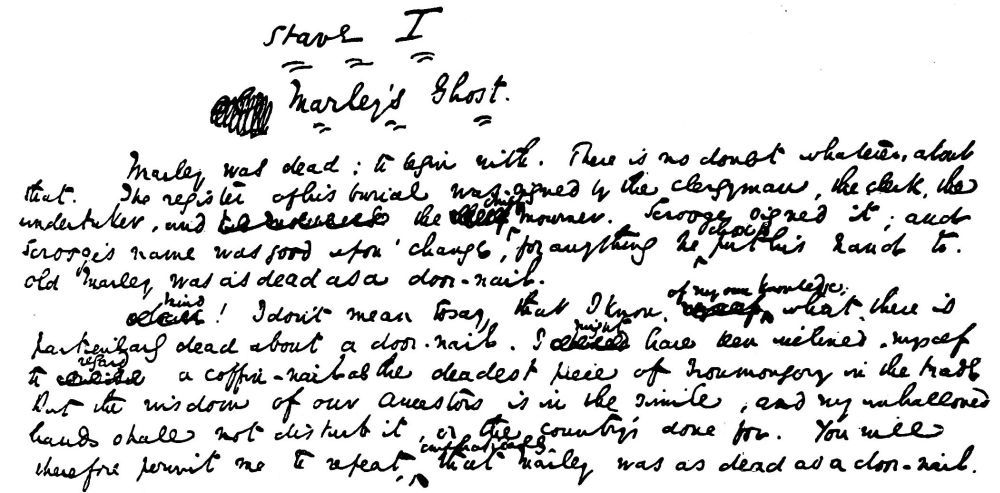 Stave I
Marley's Ghost.
Marley was dead: to begin with. There is no doubt whatever, about
that. The register of his burial was signed by the clergyman, the clerk, the
undertaker, and the chief mourner. Scrooge signed it; and
Scrooge's name was good upon 'change, for anything he chose to put his hand to.
Old Marley was as dead as a door-nail.
Mind! I don't mean to say, that I know, of my own knowledge, what there is
particularly dead about a door-nail. I might have been inclined, myself
to regard a coffin-nail as the deadest piece of Ironmongery in the trade
But the wisdom of our ancestors is in the simile, and my unhallowed
hands shall not disturb it, or the country's done for. You will
therefore permit me to repeat, emphatically, that Marley was as dead as a door-nail.